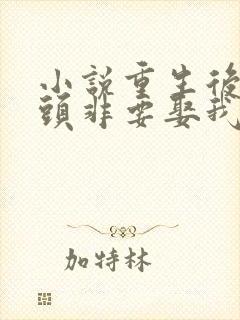 小說重生後
頭非要娶我
加特林